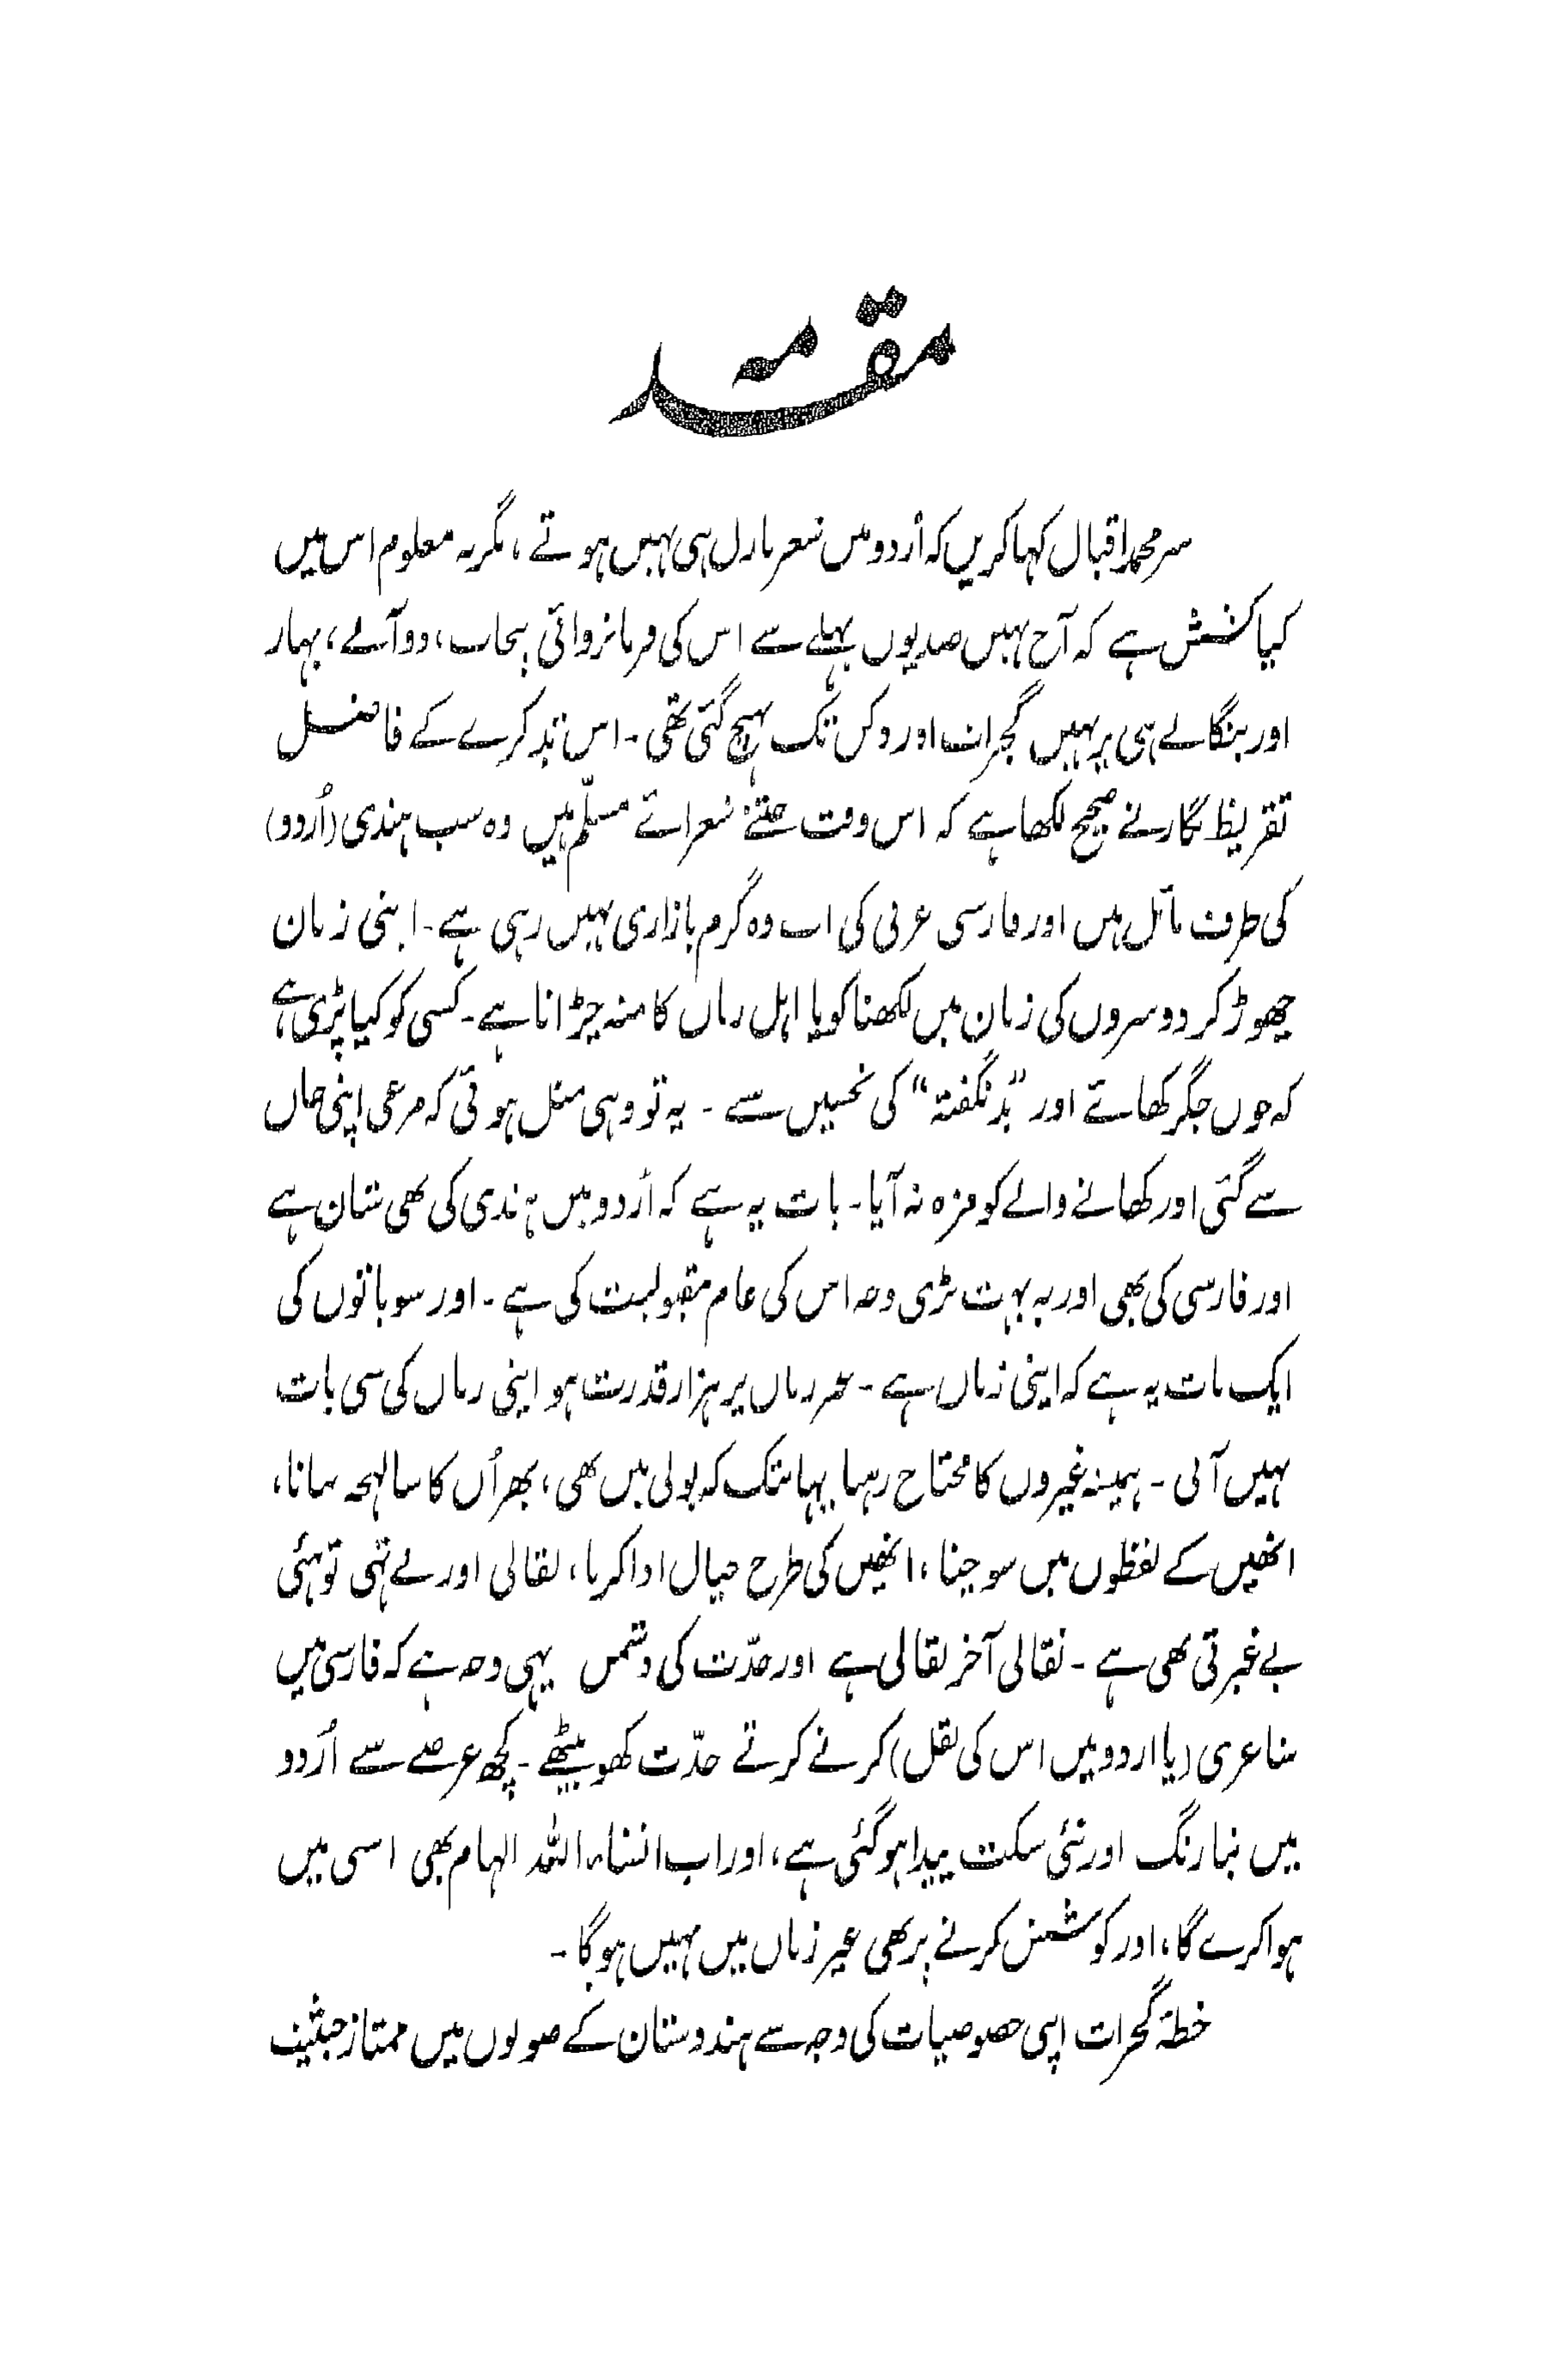 مقدمہ
سر محمد اقبال کہا کریں کہ اُردو میں شعر نازل ہی نہیں ہوتے، مگر نہ معلوم اس میں
کیا کشش ہے کہ آج نہیں صدیوں پہلے سے اس کی فرمانروائی پنجاب، دوآبے، بہار
اور بنگالے ہی پر نہیں گجرات اور دکن تک پہنچ گئی تھی۔ اس تذکرے کے فاضل
تقریظ نگار نے صحیح لکھا ہے کہ اس وقت جتنے شعرائے مسلّم ہیں وہ سب ہندی (اُردو)
کی طرف مائل ہیں اور فارسی عربی کی اب وہ گرم بازاری نہیں رہی ہے۔ اپنی زبان
چھوڑ کر دوسروں کی زبان میں لکھنا گویا اہل زباں کا منہ چڑانا ہے۔ کسی کو کیا پڑی ہے
کہ خوں جگر کھائے اور "بد نگفتہ" کی تحسیں سے۔ یہ تو وہی مثل ہوئی کہ مرغی اپنی جاں
سے گئی اور کھانے والے کو مزہ نہ آیا۔ بات یہ ہے کہ اُردو میں ہندی کی بھی شان ہے
اور فارسی کی بھی اور یہ بہت بڑی وجہ اس کی عام مقبولیت کی ہے۔ اور سو باتوں کی
ایک بات یہ ہے کہ اپنی زباں ہے۔ غیر زباں پر ہزار قدرت ہو اپنی زباں کی سی بات
نہیں آتی۔ ہمیشہ غیروں کا محتاج رہنا یہانتک کہ بولی میں بھی، پھر اُں کا سا لہجہ بنانا،
انھیں کے لفظوں میں سوچنا، انھیں کی طرح خیال ادا کرنا، نقالی اور بے تہی تو ہئی
بے غیرتی بھی ہے۔ نقالی آخر نقالی ہے اور جدّت کی دشمن یہی وجہ ہے کہ فارسی میں
شاعری (یا اردو میں اس کی نقل) کرنے کرتے جدّت کھو بیٹھے۔ کچھ عرصے سے اُردو
میں نیا رنگ اور نئی سکت پیدا ہو گئی ہے، اور اب انشاء اللہ الہام بھی اسی میں
ہوا کرے گا، اور کوشش کرنے پر بھی غیر زباں میں نہیں ہوگا۔
خطۂ گجرات اپنی خصوصیات کی وجہ سے ہندوستان کے صوبوں میں ممتاز حیثیت